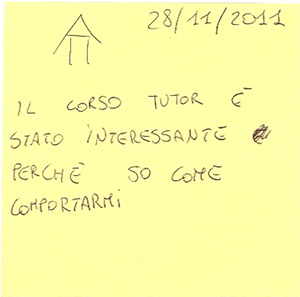 28/11/2011
IL CORSO TUTOR È
STATO INTERESSANTE
PERCHÈ SO COME
COMPORTARMI